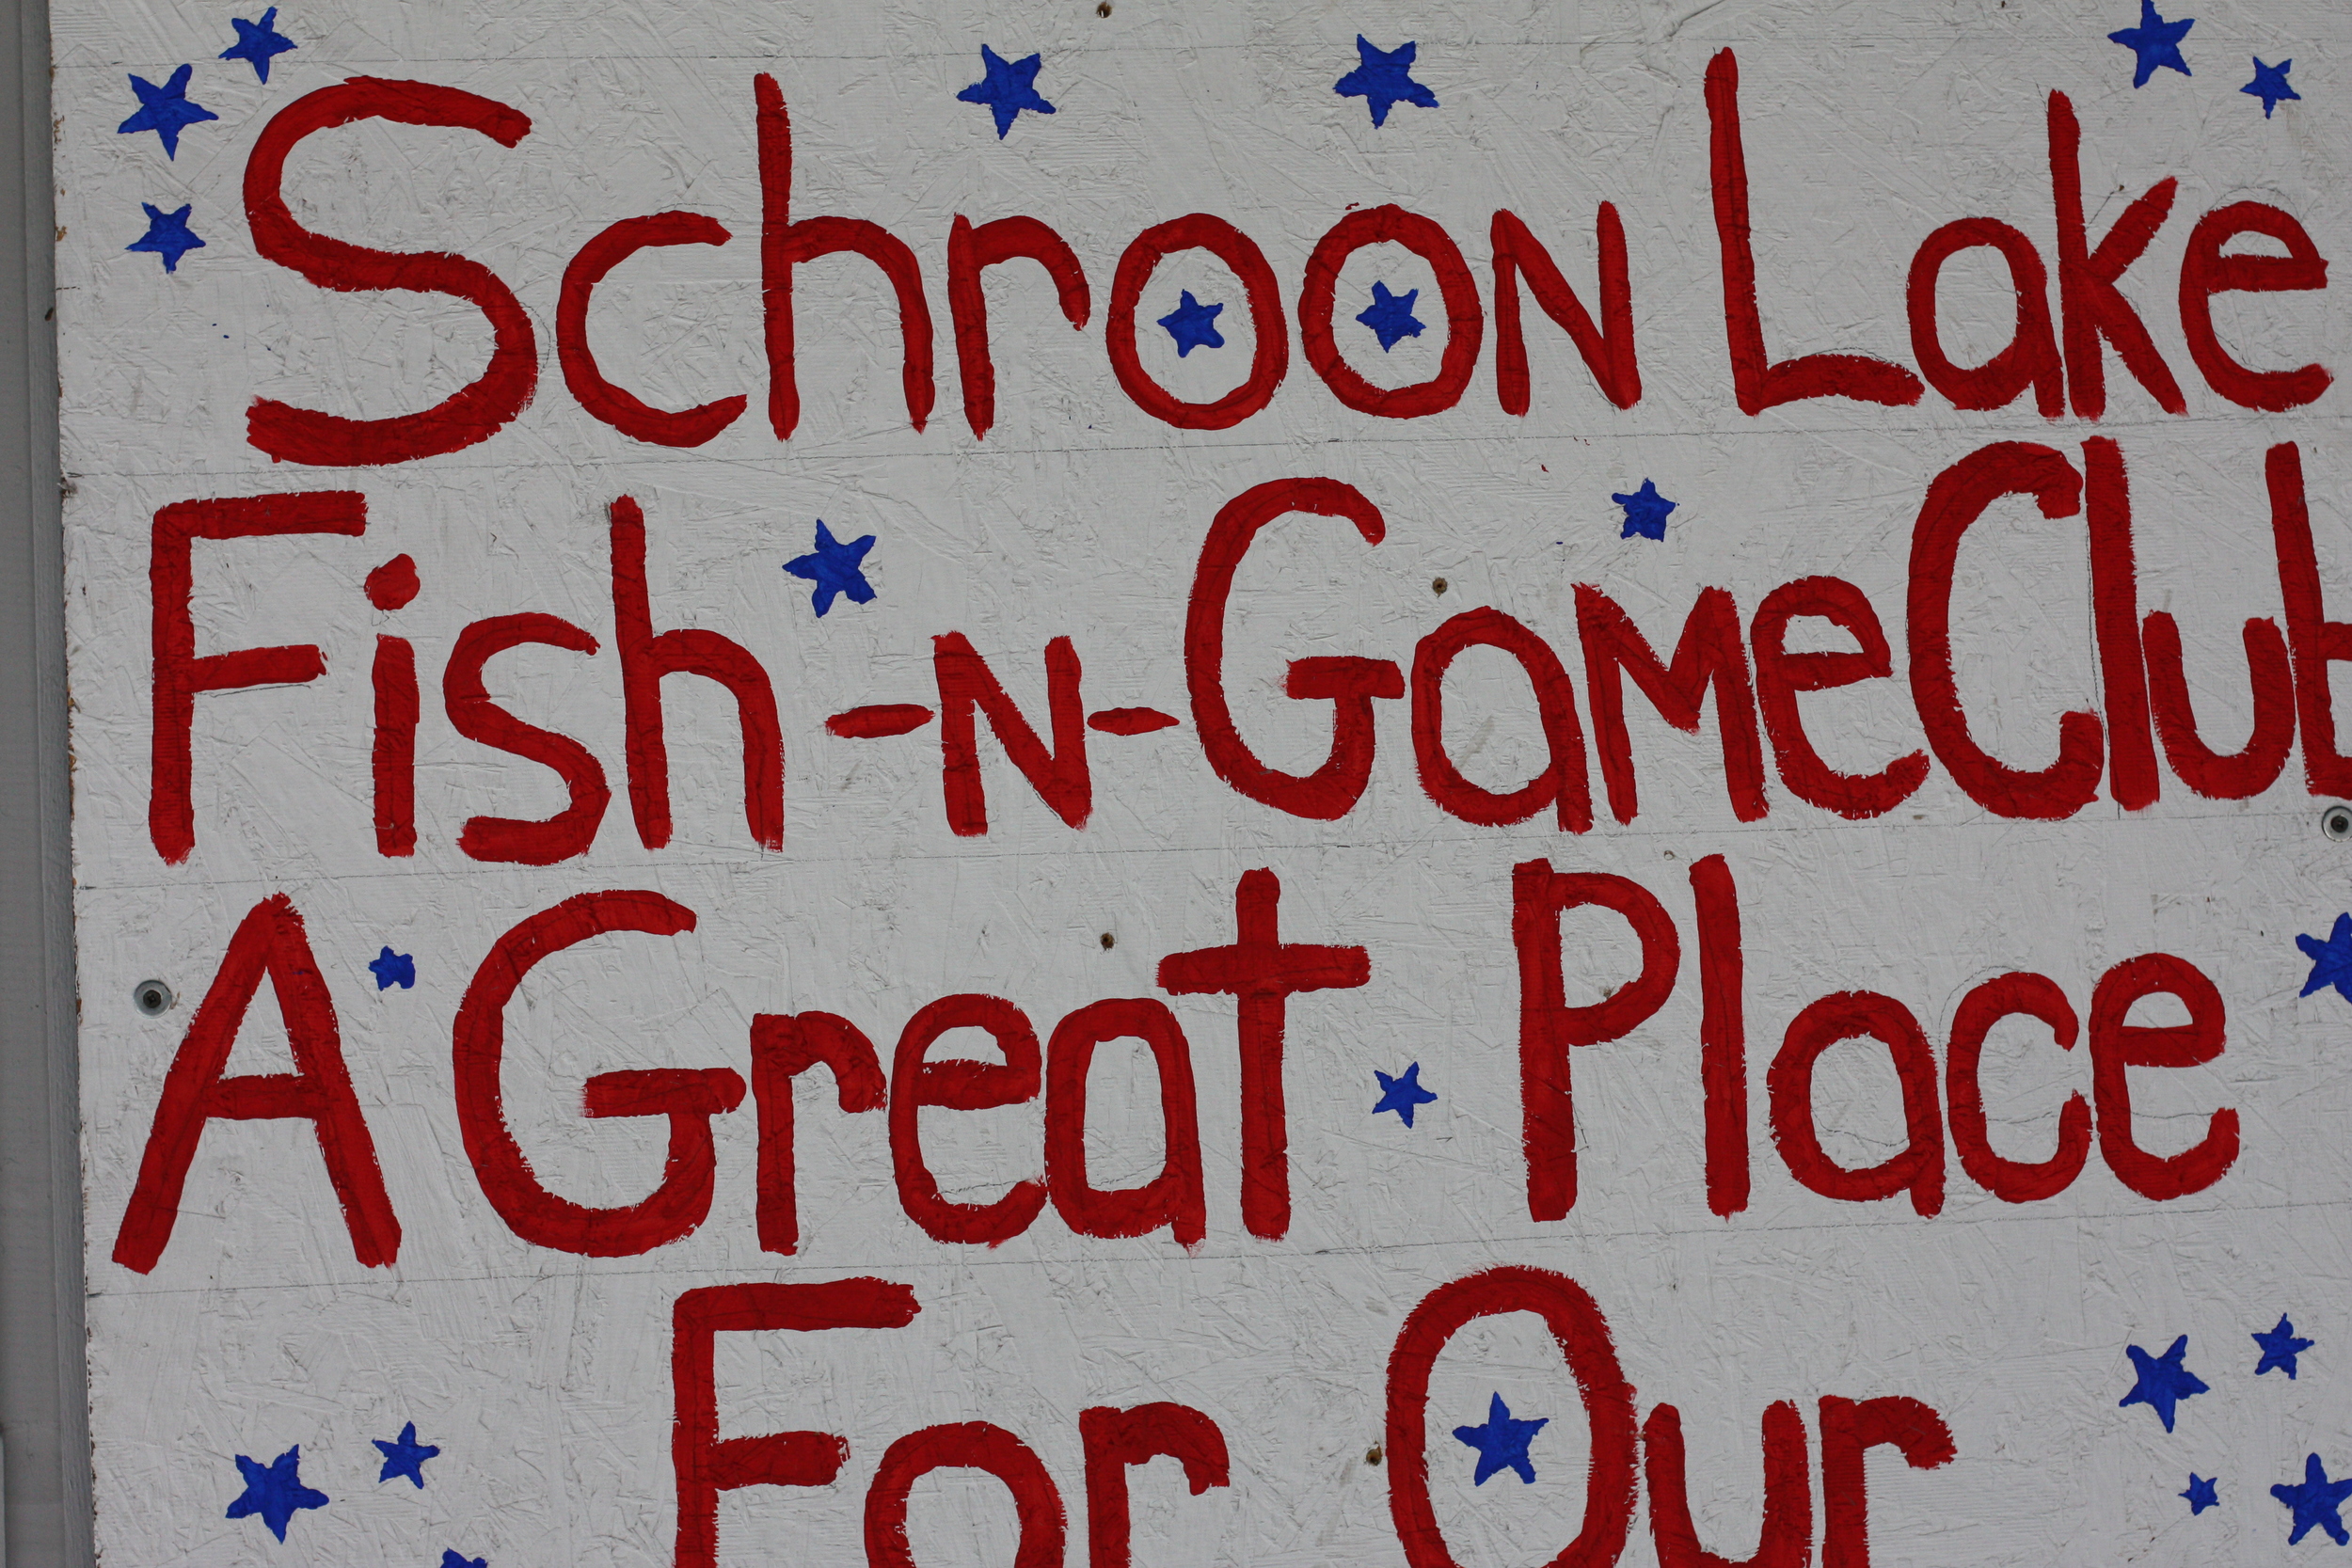 Schroon Lake
Fish-N-Game Club
A Great Place
For Our